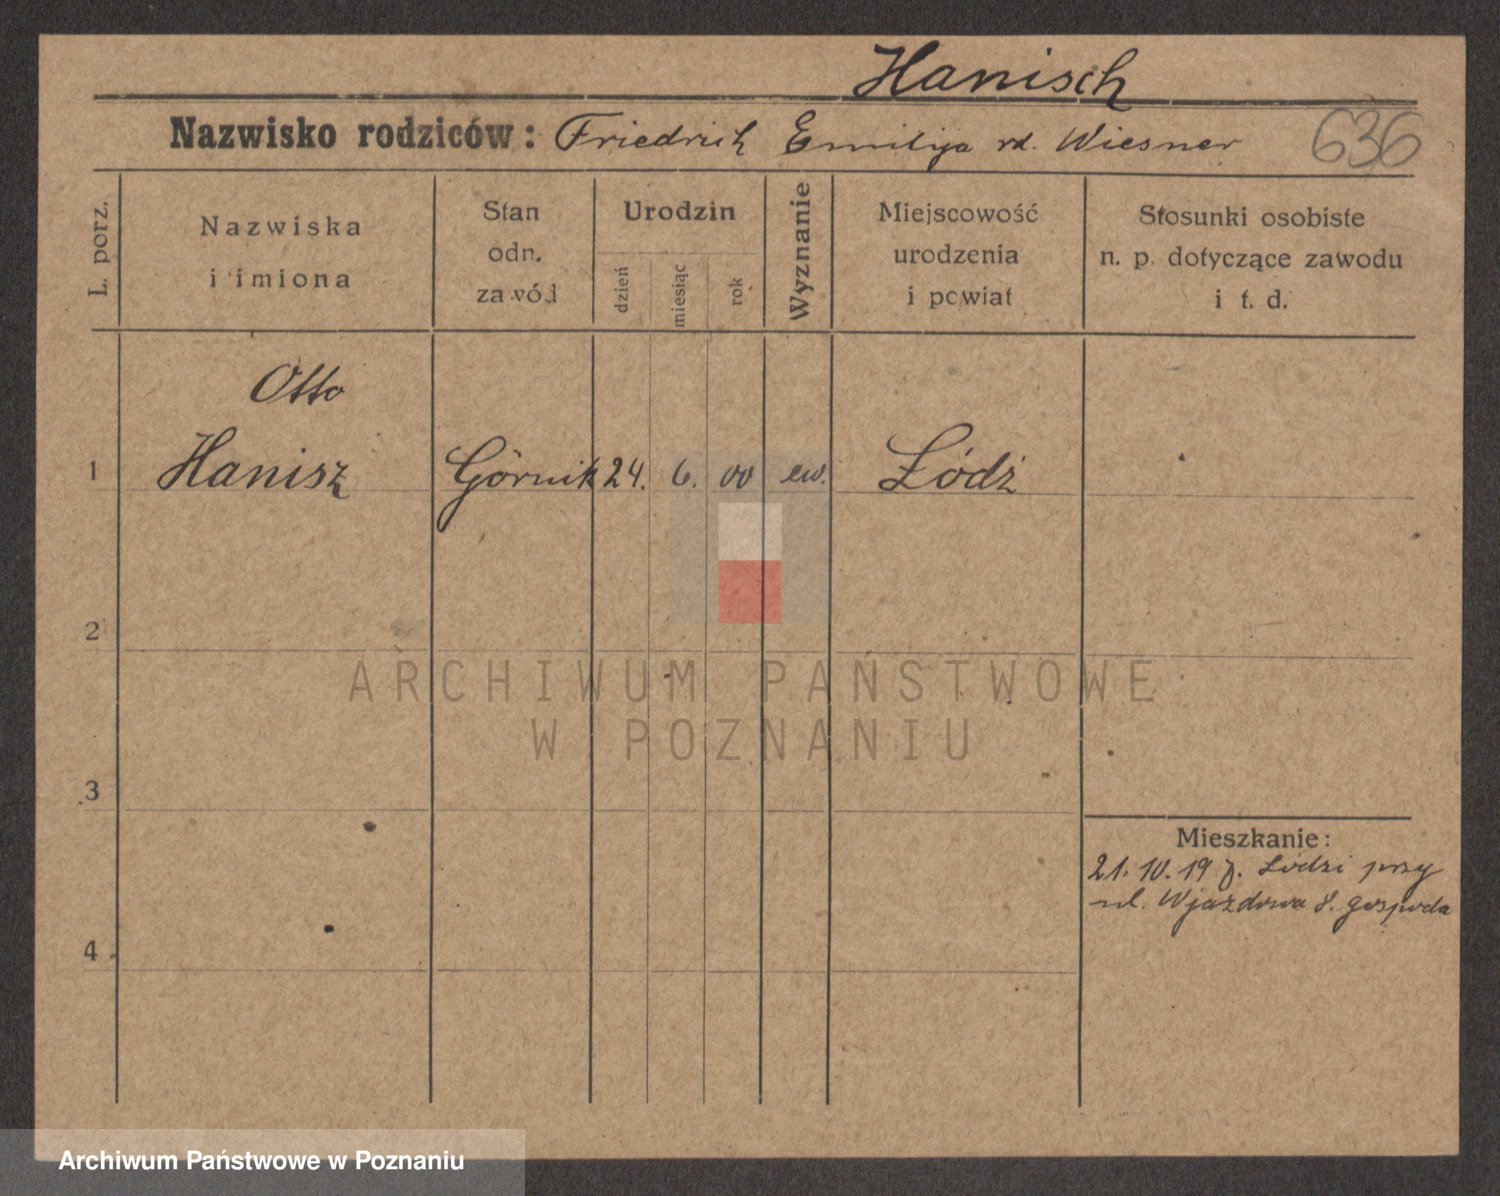 Hanisch
Nazwisko rodziców: Friedrich Emilija rd. Wiesner 636
L. porz.
Nazwiska
i imiona
Stan
odn.
zawód
Urodzin
dzień
miesiąc
rok
Wyznanie
Miejscowość
urodzenia
i powiat
Stosunki osobiste
n. p. dotyczące zawodu
i t. d.
Otto
1 Hanisz Górnik 24. 6. 00 ew. Łódź
2
ARCHIWUM PAŃSTWOWE
W POZNANIU
3
Mieszkanie:
21. 10. 19 z. Łodzi przy
ul. Wjazdowa 8. gospoda
4
Archiwum Państwowe w Poznaniu